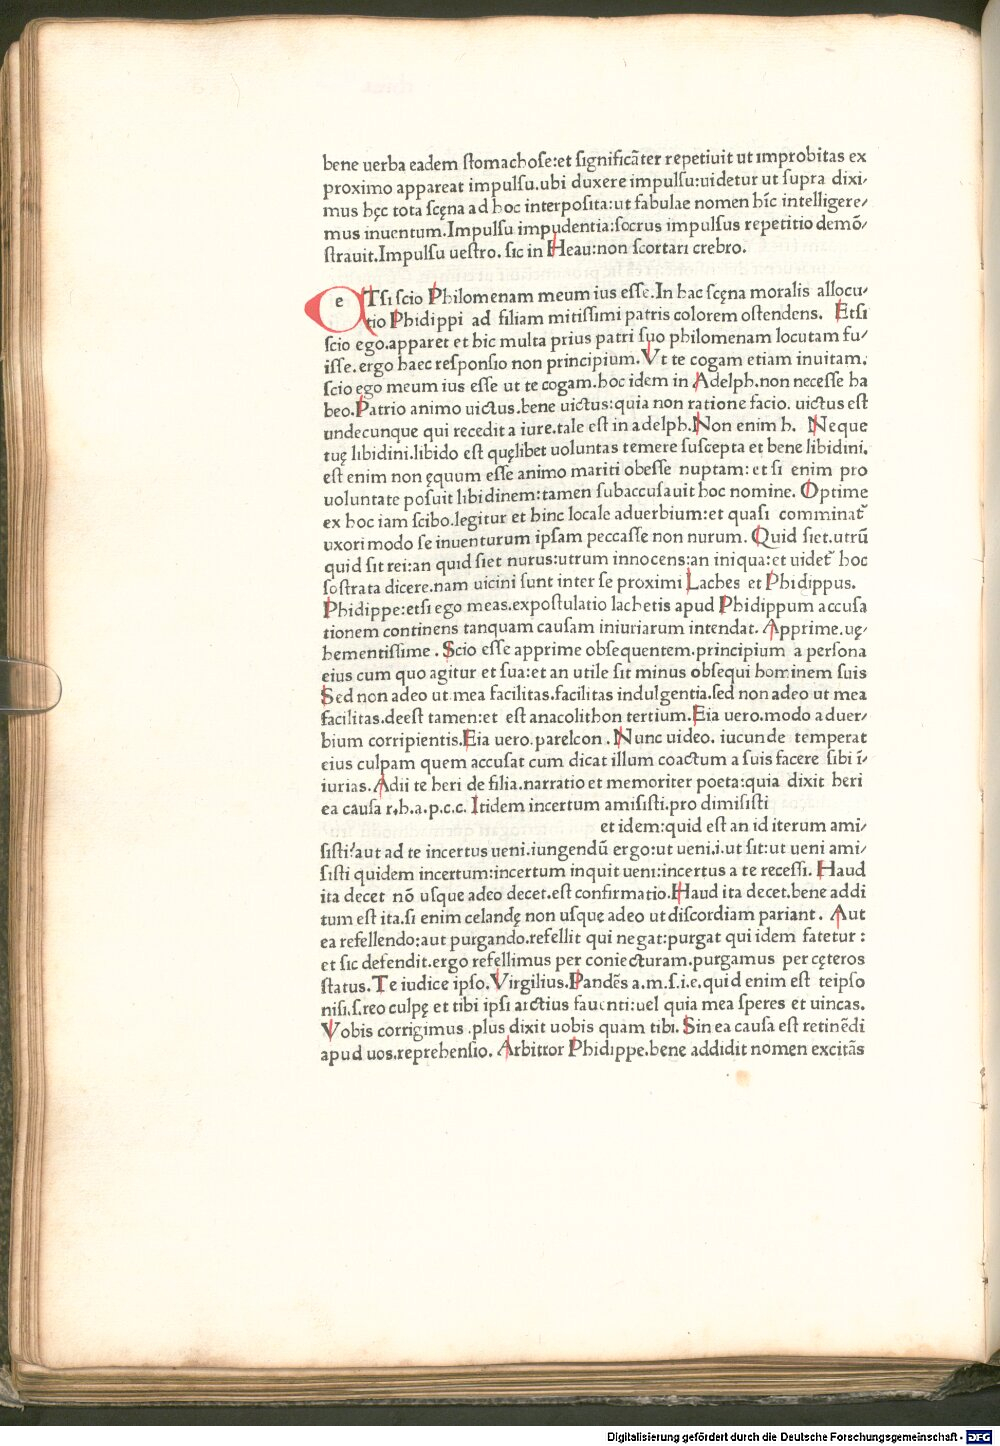 bene uerba eadem ſtomachoſe:et ſignificāter repetiuit ut improbitas ex
proximo appareat impulſu.ubi duxere impulſu:uidetur ut ſupra dixi⸗
mus hęc tota ſcęna ad hoc interpoſita:ut fabulae nomen hīc intelligere⸗
mus inuentum.Impulſu impudentia:ſocrus impulſus repetitio demō⸗
ſtrauit.Impulſu ueſtro. ſic in Heau:non ſcortari crebro.
e Tſi ſcio Philomenam meum ius eſſe.In hac ſcęna moralis allocu⸗
tio Phidippi ad filiam mitiſſimi patris colorem oſtendens. Etſi
ſcio ego.apparet et hic multa prius patri ſuo philomenam locutam fu⸗
iſſe.ergo haec reſponſio non principium.Vt te cogam etiam inuitam.
ſcio ego meum ius eſſe ut te cogam.hoc idem in Adelph.non neceſſe ha
beo.Patrio animo uictus.bene uictus:quia non ratione facio. uictus eſt
undecunque qui recedit a iure.tale eſt in adelph.Non enim h. Neque
tuę libidini.libido eſt quęlibet uoluntas temere ſuſcepta et bene libidini.
eſt enim non ęquum eſſe animo mariti obeſſe nuptam: et ſi enim pro
uoluntate poſuit libidinem:tamen ſubaccuſauit hoc nomine. Optime
ex hoc iam ſcibo.legitur et hinc locale aduerbium:et quaſi comminat᷑
uxori modo ſe inuenturum ipſam peccaſſe non nurum. Quid ſiet.utrū
quid ſit rei:an quid ſiet nurus:utrum innocens:an iniqua:et uidet᷑ hoc
ſoſtrata dicere.nam uicini ſunt inter ſe proximi Laches et Phidippus.
Phidippe:etſi ego meas.expoſtulatio lachetis apud Phidippum accuſa
tionem continens tanquam cauſam iniuriarum intendat. Apprime.uę⸗
hementiſſime . Scio eſſe apprime obſequentem.principium a perſona
eius cum quo agitur et ſua:et an utile ſit minus obſequi hominem ſuis
Sed non adeo ut mea facilitas.facilitas indulgentia.ſed non adeo ut mea
facilitas.deeſt tamen:et eſt anacolithon tertium.Eia uero.modo aduer⸗
bium corripientis.Eia uero.parelcon . Nunc uideo. iucunde temperat
eius culpam quem accuſat cum dicat illum coactum a ſuis facere ſibi ī⸗
iurias. Adii te heri de filia.narratio et memoriter poeta:quia dixit heri
ea cauſa r.h.a.p.c.c. Itidem incertum amiſiſti.pro dimiſiſti
et idem:quid eſt an id iterum ami⸗
ſiſti?aut ad te incertus ueni.iungendū ergo:ut ueni.i.ut ſit:ut ueni ami⸗
ſiſti quidem incertum:incertum inquit ueni:incertus a te receſſi. Haud
ita decet nō uſque adeo decet.eſt confirmatio.Haud ita decet.bene addi
tum eſt ita.ſi enim celandę non uſque adeo ut diſcordiam pariant . Aut
ea refellendo:aut purgando.refellit qui negat:purgat qui idem fatetur :
et ſic defendit.ergo refellimus per coniecturam.purgamus per cęteros
ſtatus. Te iudice ipſo. Virgilius.Pandēs a.m.ſ.i.e.quid enim eſt teipſo
niſi.ſ.reo culpę et tibi ipſi arctius fauenti:uel quia mea ſperes et uincas.
Vobis corrigimus .plus dixit uobis quam tibi. Sin ea cauſa eſt retinēdi
apud uos.reprehenſio. Arbitror Phidippe.bene addidit nomen excitās
Digitalisierung gefördert durch die Deutsche Forschungsgemeinschaft - DFG